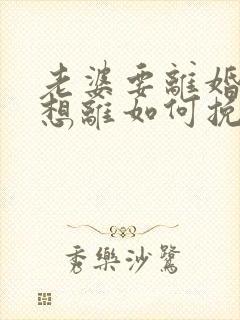 老婆要離婚
想離如何挽
秀樂沙鷺